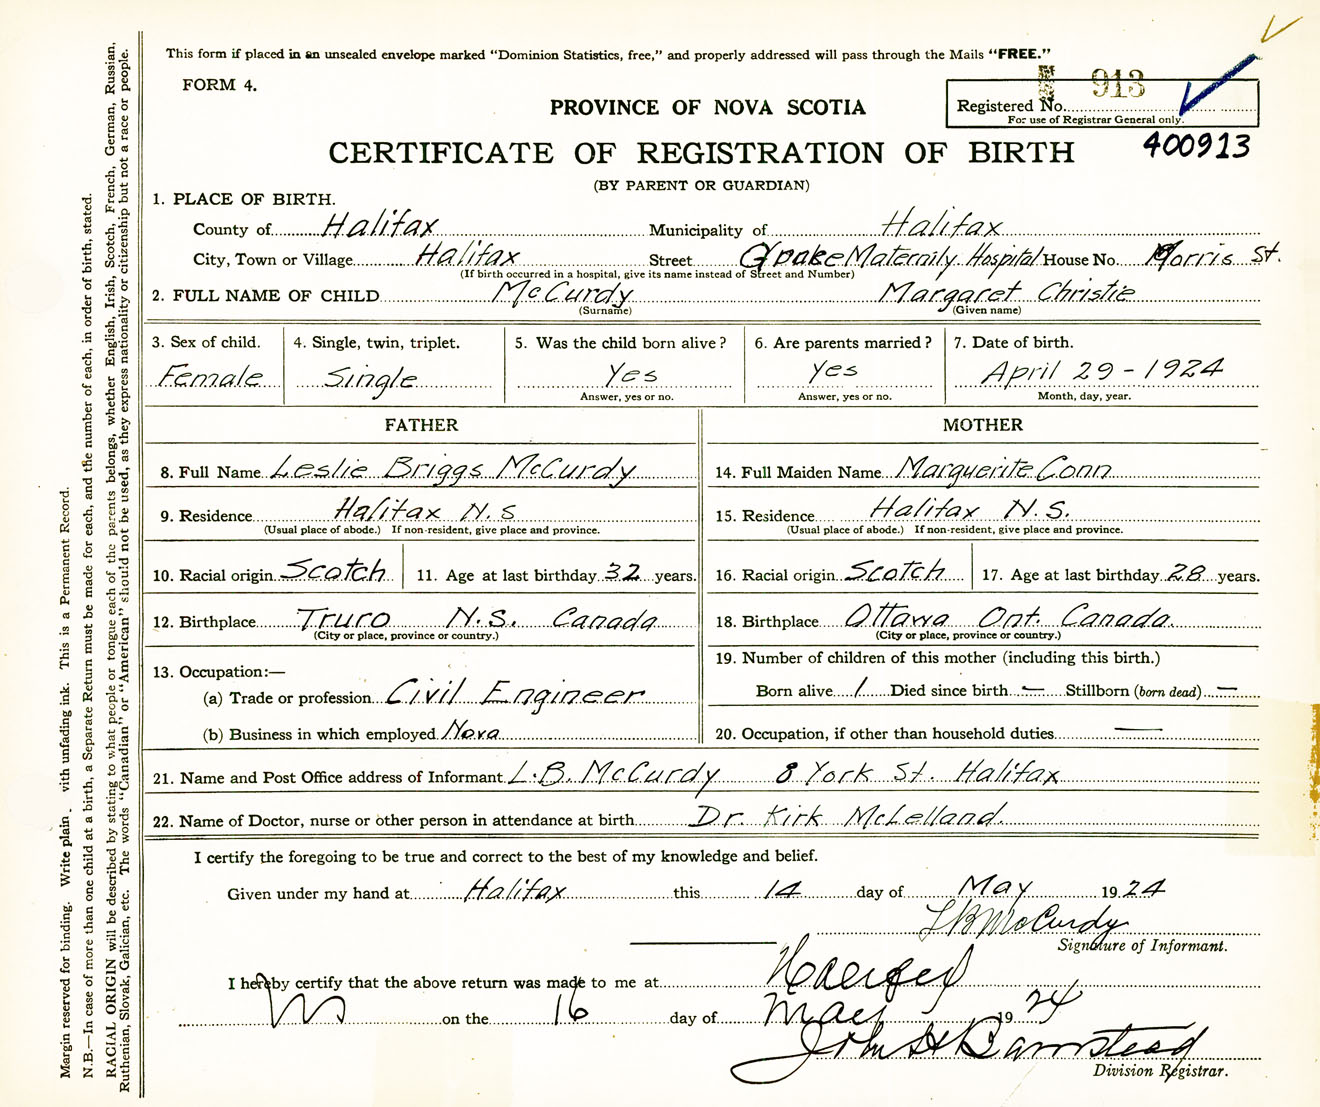 This form if placed in an unsealed envelope marked "Dominion Statistics, free," and properly addressed will pass through the Mails "FREE."
FORM 4.
913
PROVINCE OF NOVA SCOTIA
Registered No.
For use of Registrar General only.
400913
CERTIFICATE OF REGISTRATION OF BIRTH
(BY PARENT OR GUARDIAN)
1. PLACE OF BIRTH.
County of Halifax Municipality of Halifax
City, Town or Village Halifax Street Maternity Hospital House No. Morris St.
(If birth occurred in a hospital, give its name instead of Street and Number)
2. FULL NAME OF CHILD McCurdy Margaret Christie
(Surname) (Given name)
3. Sex of child. 4. Single, twin, triplet. 5. Was the child born alive? 6. Are parents married? 7. Date of birth.
Female Single Yes Yes April 29-1924
Answer, yes or no. Answer, yes or no. Month, day, year.
FATHER MOTHER
8. Full Name Leslie Briggs McCurdy 14. Full Maiden Name Marguerite Conn
9. Residence Halifax N.S 15. Residence Halifax N.S.
(Usual place of abode.) If non-resident, give place and province. (Usual place of abode.) If non-resident, give place and province.
10. Racial origin Scotch 11. Age at last birthday 32 years. 16. Racial origin Scotch 17. Age at last birthday 28 years.
12. Birthplace Truro N.S. Canada 18. Birthplace Ottawa Ont. Canada.
(City or place, province or country.) (City or place, province or country.)
13. Occupation:— 19. Number of children of this mother (including this birth.)
(a) Trade or profession Civil Engineer Born alive 1 Died since birth — Stillborn (born dead) —
(b) Business in which employed Nova 20. Occupation, if other than household duties —
21. Name and Post Office address of Informant L.B. McCurdy 8 York St. Halifax
22. Name of Doctor, nurse or other person in attendance at birth Dr. Kirk McLelland.
I certify the foregoing to be true and correct to the best of my knowledge and belief.
Given under my hand at Halifax this 14 day of May 1924
LBMcCurdy
Signature of Informant.
I hereby certify that the above return was made to me at Halifax
on the 16 day of May 1924
John H Barnstead
Division Registrar.
Margin reserved for binding. Write plain with unfading ink. This is a Permanent Record.
N.B.—In case of more than one child at a birth, a Separate Return must be made for each, and the number of each, in order of birth, stated.
RACIAL ORIGIN will be described by stating to what people or tongue each of the parents belongs, whether English, Irish, Scotch, French, German, Russian,
Ruthenian, Slovak, Galician, etc. The words "Canadian" or "American" should not be used, as they express nationality or citizenship but not a race or people.